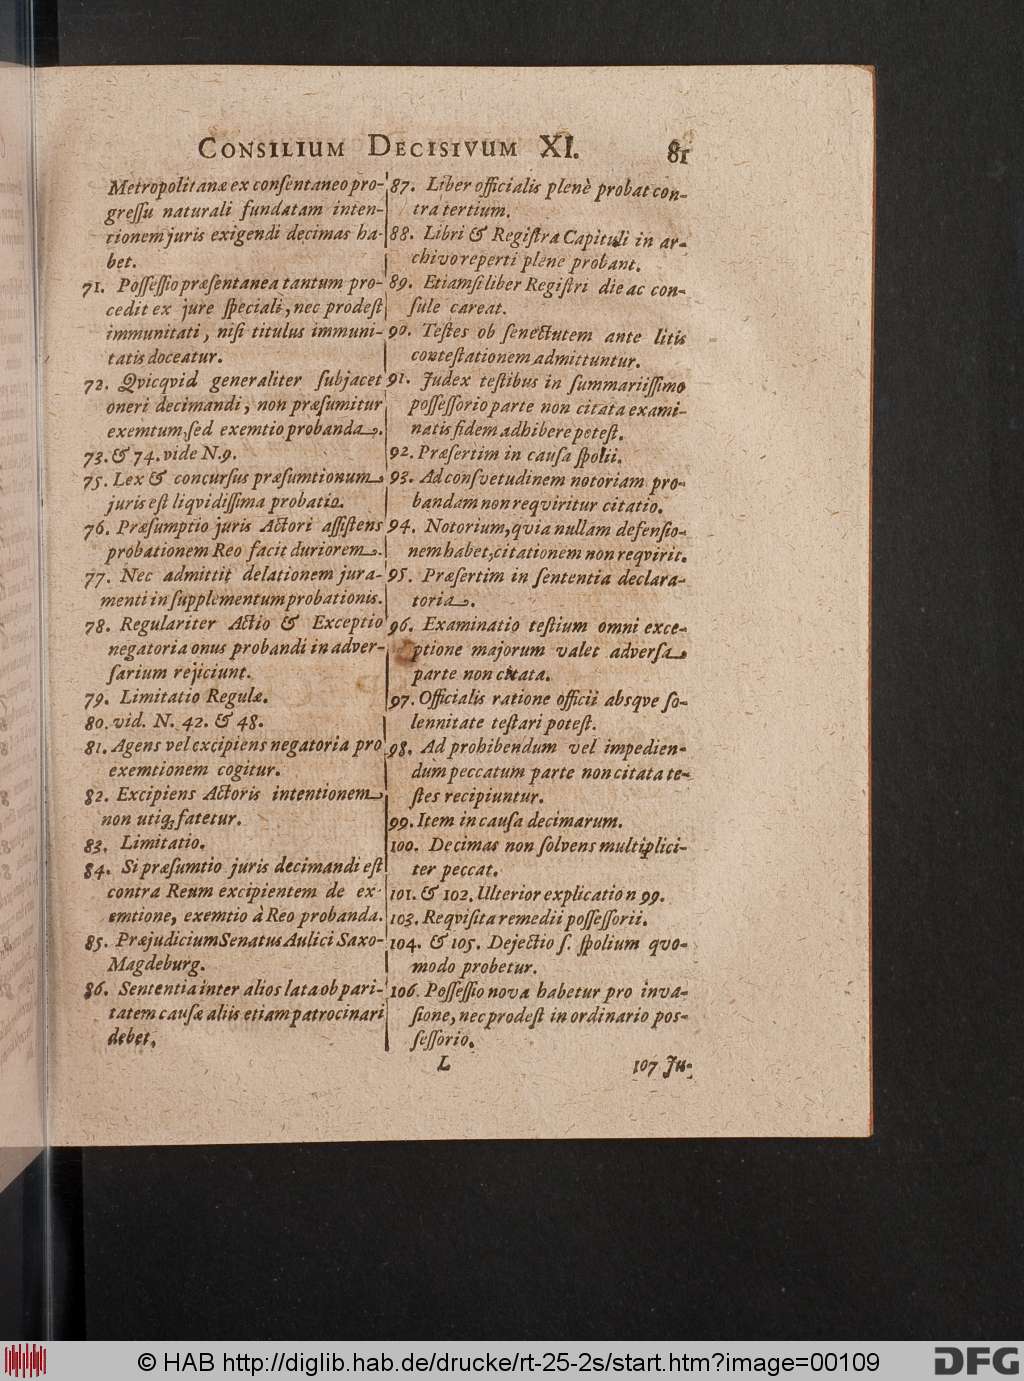 CONSILIUM DECISIVUM XI. 81
Metropolitanæ ex conſentaneo pro-
greſſu naturali fundatam inten-
tionem juris exigendi decimas ha-
bet.
71. Poſſeſſio præſentanea tantum pro-
cedit ex jure ſpeciali, nec prodeſt
immunitati, niſi titulus immuni-
tatis doceatur.
72. Qvicqvid generaliter ſubjacet
oneri decimandi, non præſumitur
exemtum, ſed exemtio probanda.
73. & 74. vide N. 9.
75. Lex & concurſus præſumtionum
juris eſt liqvidiſſima probatio.
76. Præſumptio juris Actori aſſiſtens
probationem Reo facit duriorem.
77. Nec admittit delationem jura-
menti in ſupplementum probationis.
78. Regulariter Actio & Exceptio
negatoria onus probandi in adver-
ſarium rejiciunt.
79. Limitatio Regulæ.
80. vid. N. 42. & 48.
81. Agens vel excipiens negatoria pro
exemtionem cogitur.
82. Excipiens Actoris intentionem
non utiq; fatetur.
83. Limitatio.
84. Si præſumtio juris decimandi eſt
contra Reum excipientem de ex-
emtione, exemtio à Reo probanda.
85. Præjudicium Senatus Aulici Saxo-
Magdeburg.
86. Sententia inter alios lata ob pari-
tatem cauſæ aliis etiam patrocinari
debet.
87. Liber officialis plenè probat con-
tra tertium.
88. Libri & Regiſtra Capituli in ar-
chivo reperti plene probant.
89. Etiamſi liber Regiſtri die ac con-
ſule careat.
90. Teſtes ob ſenectutem ante litis
conteſtationem admittuntur.
91. Judex teſtibus in ſummariiſſimo
poſſeſſorio parte non citata exami-
natis fidem adhibere poteſt.
92. Præſertim in cauſa ſpolii.
93. Ad conſvetudinem notoriam pro-
bandam non reqviritur citatio.
94. Notorium, qvia nullam defenſio-
nem habet, citationem non reqvirit.
95. Præſertim in ſententia declara-
toria.
96. Examinatio teſtium omni exce-
ptione majorum valet adverſa
parte non citata.
97. Officialis ratione officii absqve ſo-
lennitate teſtari poteſt.
98. Ad prohibendum vel impedien-
dum peccatum parte non citata te-
ſtes recipiuntur.
99. Item in cauſa decimarum.
100. Decimas non ſolvens multiplici-
ter peccat.
101. & 102. Ulterior explicatio n 99.
103. Reqviſita remedii poſſeſſorii.
104. & 105. Dejectio ſ. ſpolium quo-
modo probetur.
106. Poſſeſſio nova habetur pro inva-
ſione, nec prodeſt in ordinario pos-
ſeſſorio.
L 107 Ju-
© HAB http://diglib.hab.de/drucke/rt-25-2s/start.htm?image=00109
DFG